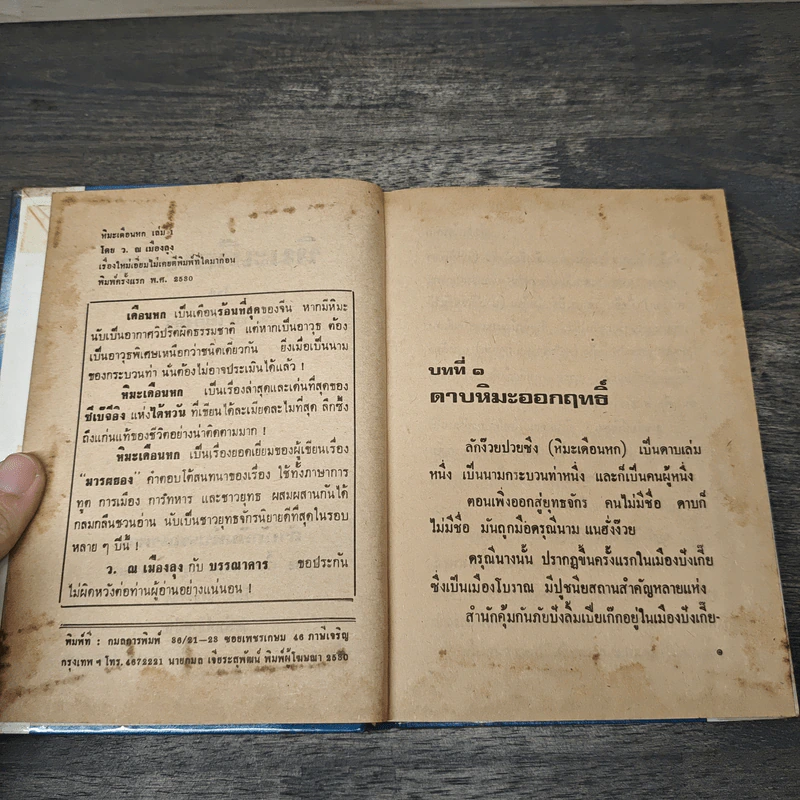 หิมะเดือนหก เล่ม 1
โดย ว. ณ เมืองลุง
เรื่องใหม่เอี่ยมไม่เคยตีพิมพ์ที่ใดมาก่อน
พิมพ์ครั้งแรก พ.ศ. 2530
เดือนหก เป็นเดือนร้อนที่สุดของจีน หากมีหิมะ
นับเป็นอากาศวิปริตผิดธรรมชาติ แต่หากเป็นอาวุธ ต้อง
เป็นอาวุธพิเศษเหนือกว่าชนิดเดียวกัน ยิ่งเมื่อเป็นนาม
ของกระบวนท่า นั่นต้องไม่อาจประเมินได้แล้ว !
หิมะเดือนหก เป็นเรื่องล่าสุดและเด่นที่สุดของ
ซีเบ๊จีอิง แห่งไต้หวัน ที่เขียนได้ละเมียดละไมที่สุด ลึกซึ้ง
ถึงแก่นแท้ของชีวิตอย่างน่าติดตามมาก !
หิมะเดือนหก เป็นเรื่องยอดเยี่ยมของผู้เขียนเรื่อง
"มารผยอง" คำตอบโต้สนทนาของเรื่อง ใช้ทั้งภาษาการ
ทูต การเมือง การทหาร และชาวยุทธ ผสมผสานกันได้
กลมกลืนชวนอ่าน นับเป็นชาวยุทธจักรนิยายดีที่สุดในรอบ
หลาย ๆ ปีนี้ !
ว. ณ เมืองลุง กับ บรรณาคาร ขอประกัน
ไม่ผิดหวังต่อท่านผู้อ่านอย่างแน่นอน !
พิมพ์ที่ : กมลการพิมพ์ 36/21-23 ซอยเพชรเกษม 46 ภาษีเจริญ
กรุงเทพ ฯ โทร. 4672221 นายกมล เจียระสุพัฒน์ พิมพ์ผู้โฆษณา 2530
บทที่ ๑
ดาบหิมะออกฤทธิ์
ลักง๊วยปวยซึง (หิมะเดือนหก) เป็นดาบเล่ม
หนึ่ง เป็นนามกระบวนท่าหนึ่ง และก็เป็นคนผู้หนึ่ง
ตอนเพิ่งออกสู่ยุทธจักร คนไม่มีชื่อ ดาบก็
ไม่มีชื่อ มันถูกมือดรุณีนาม แนฮั่งง๊วย
ดรุณีนางนั้น ปรากฏขึ้นครั้งแรกในเมืองปังเกี๊ย
ซึ่งเป็นเมืองโบราณ มีปูชนียสถานสำคัญหลายแห่ง
สำนักคุ้มกันภัยปังลิ้มเปียเก๊กอยู่ในเมืองปังเกี๊ย-
๑